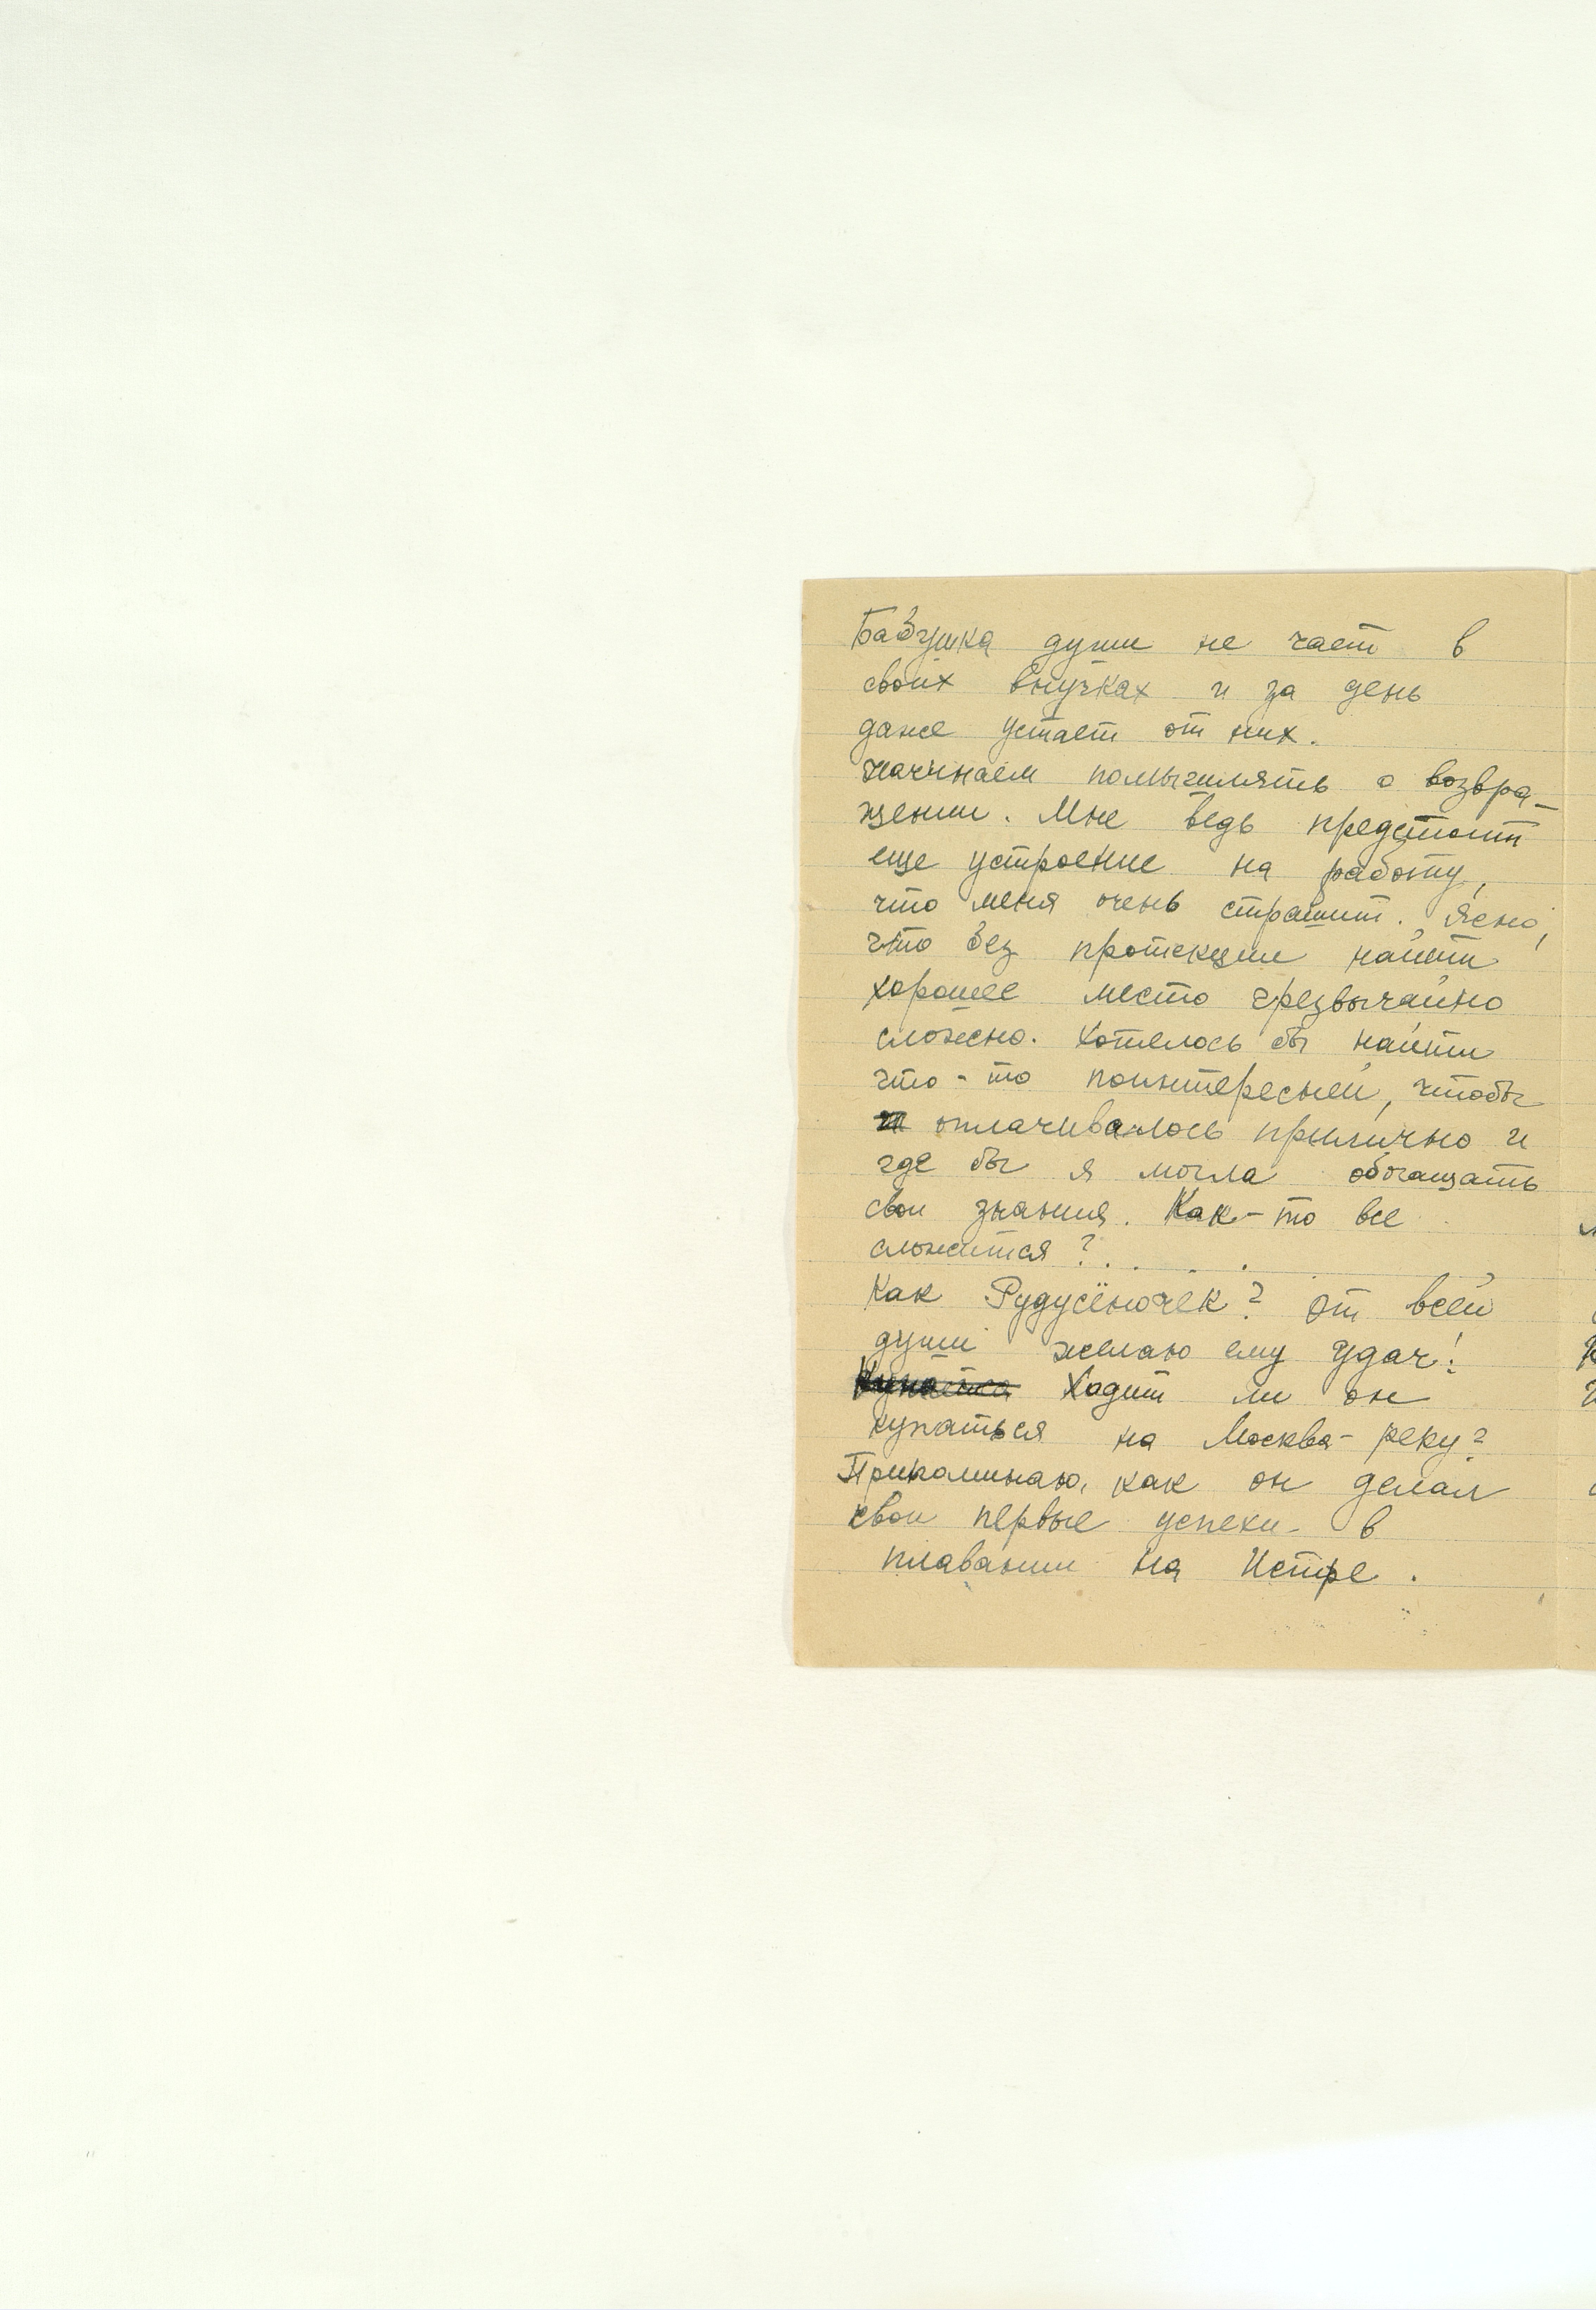 Бабушка души не чает в
своих внучках и за день
даже устает от них.
Начинаем помышлять о возвра-
щении. Мне ведь предстоит
еще устроение на работу,
что меня очень страшит. Ясно,
что без протекции найти
хорошее место чрезвычайно
сложно. Хотелось бы найти
что-то поинтересней, чтобы
оплачивалось прилично и
где бы я могла обогащать
свои знания. Как-то все
сложится?....
Как Рудусёночек? От всей
души желаю ему удач!
Купается Ходит ли он
купаться на Москва-реку?
Припоминаю, как он делал
свои первые успехи в
плавании на Истре.